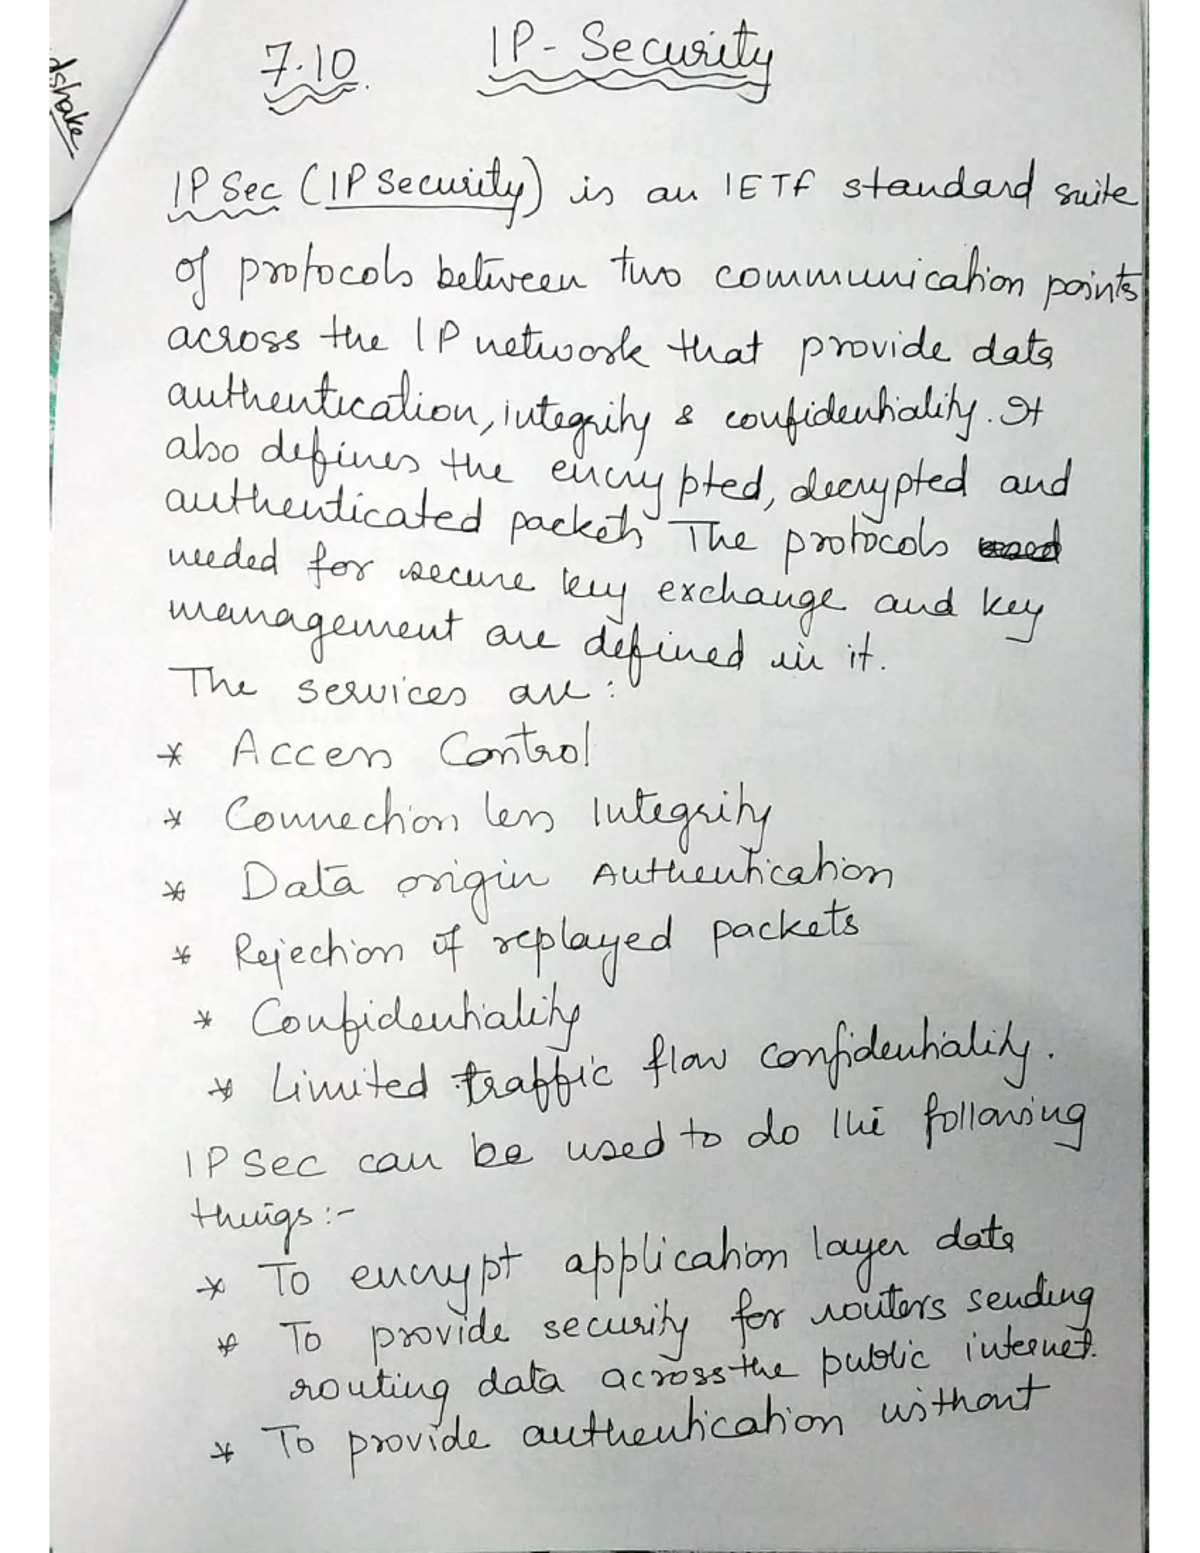 dshake
7.10. IP- Security
IP Sec (IP Security) is an IETF standard suite
of protocols between two communication points
across the IP network that provide data
authentication, integrity & confidentiality. It
also defines the encrypted, decrypted and
authenticated packets The protocols
needed for secure key exchange and key
management are defined in it.
The services are:
* Access Control
* Connection less Integrity
* Data origin Authentication
* Rejection of replayed packets
* Confidentiality
* Limited traffic flow confidentiality.
IP Sec can be used to do the following
things:-
* To encrypt application layer data
* To provide security for routers sending
routing data across the public internet.
* To provide authentication without